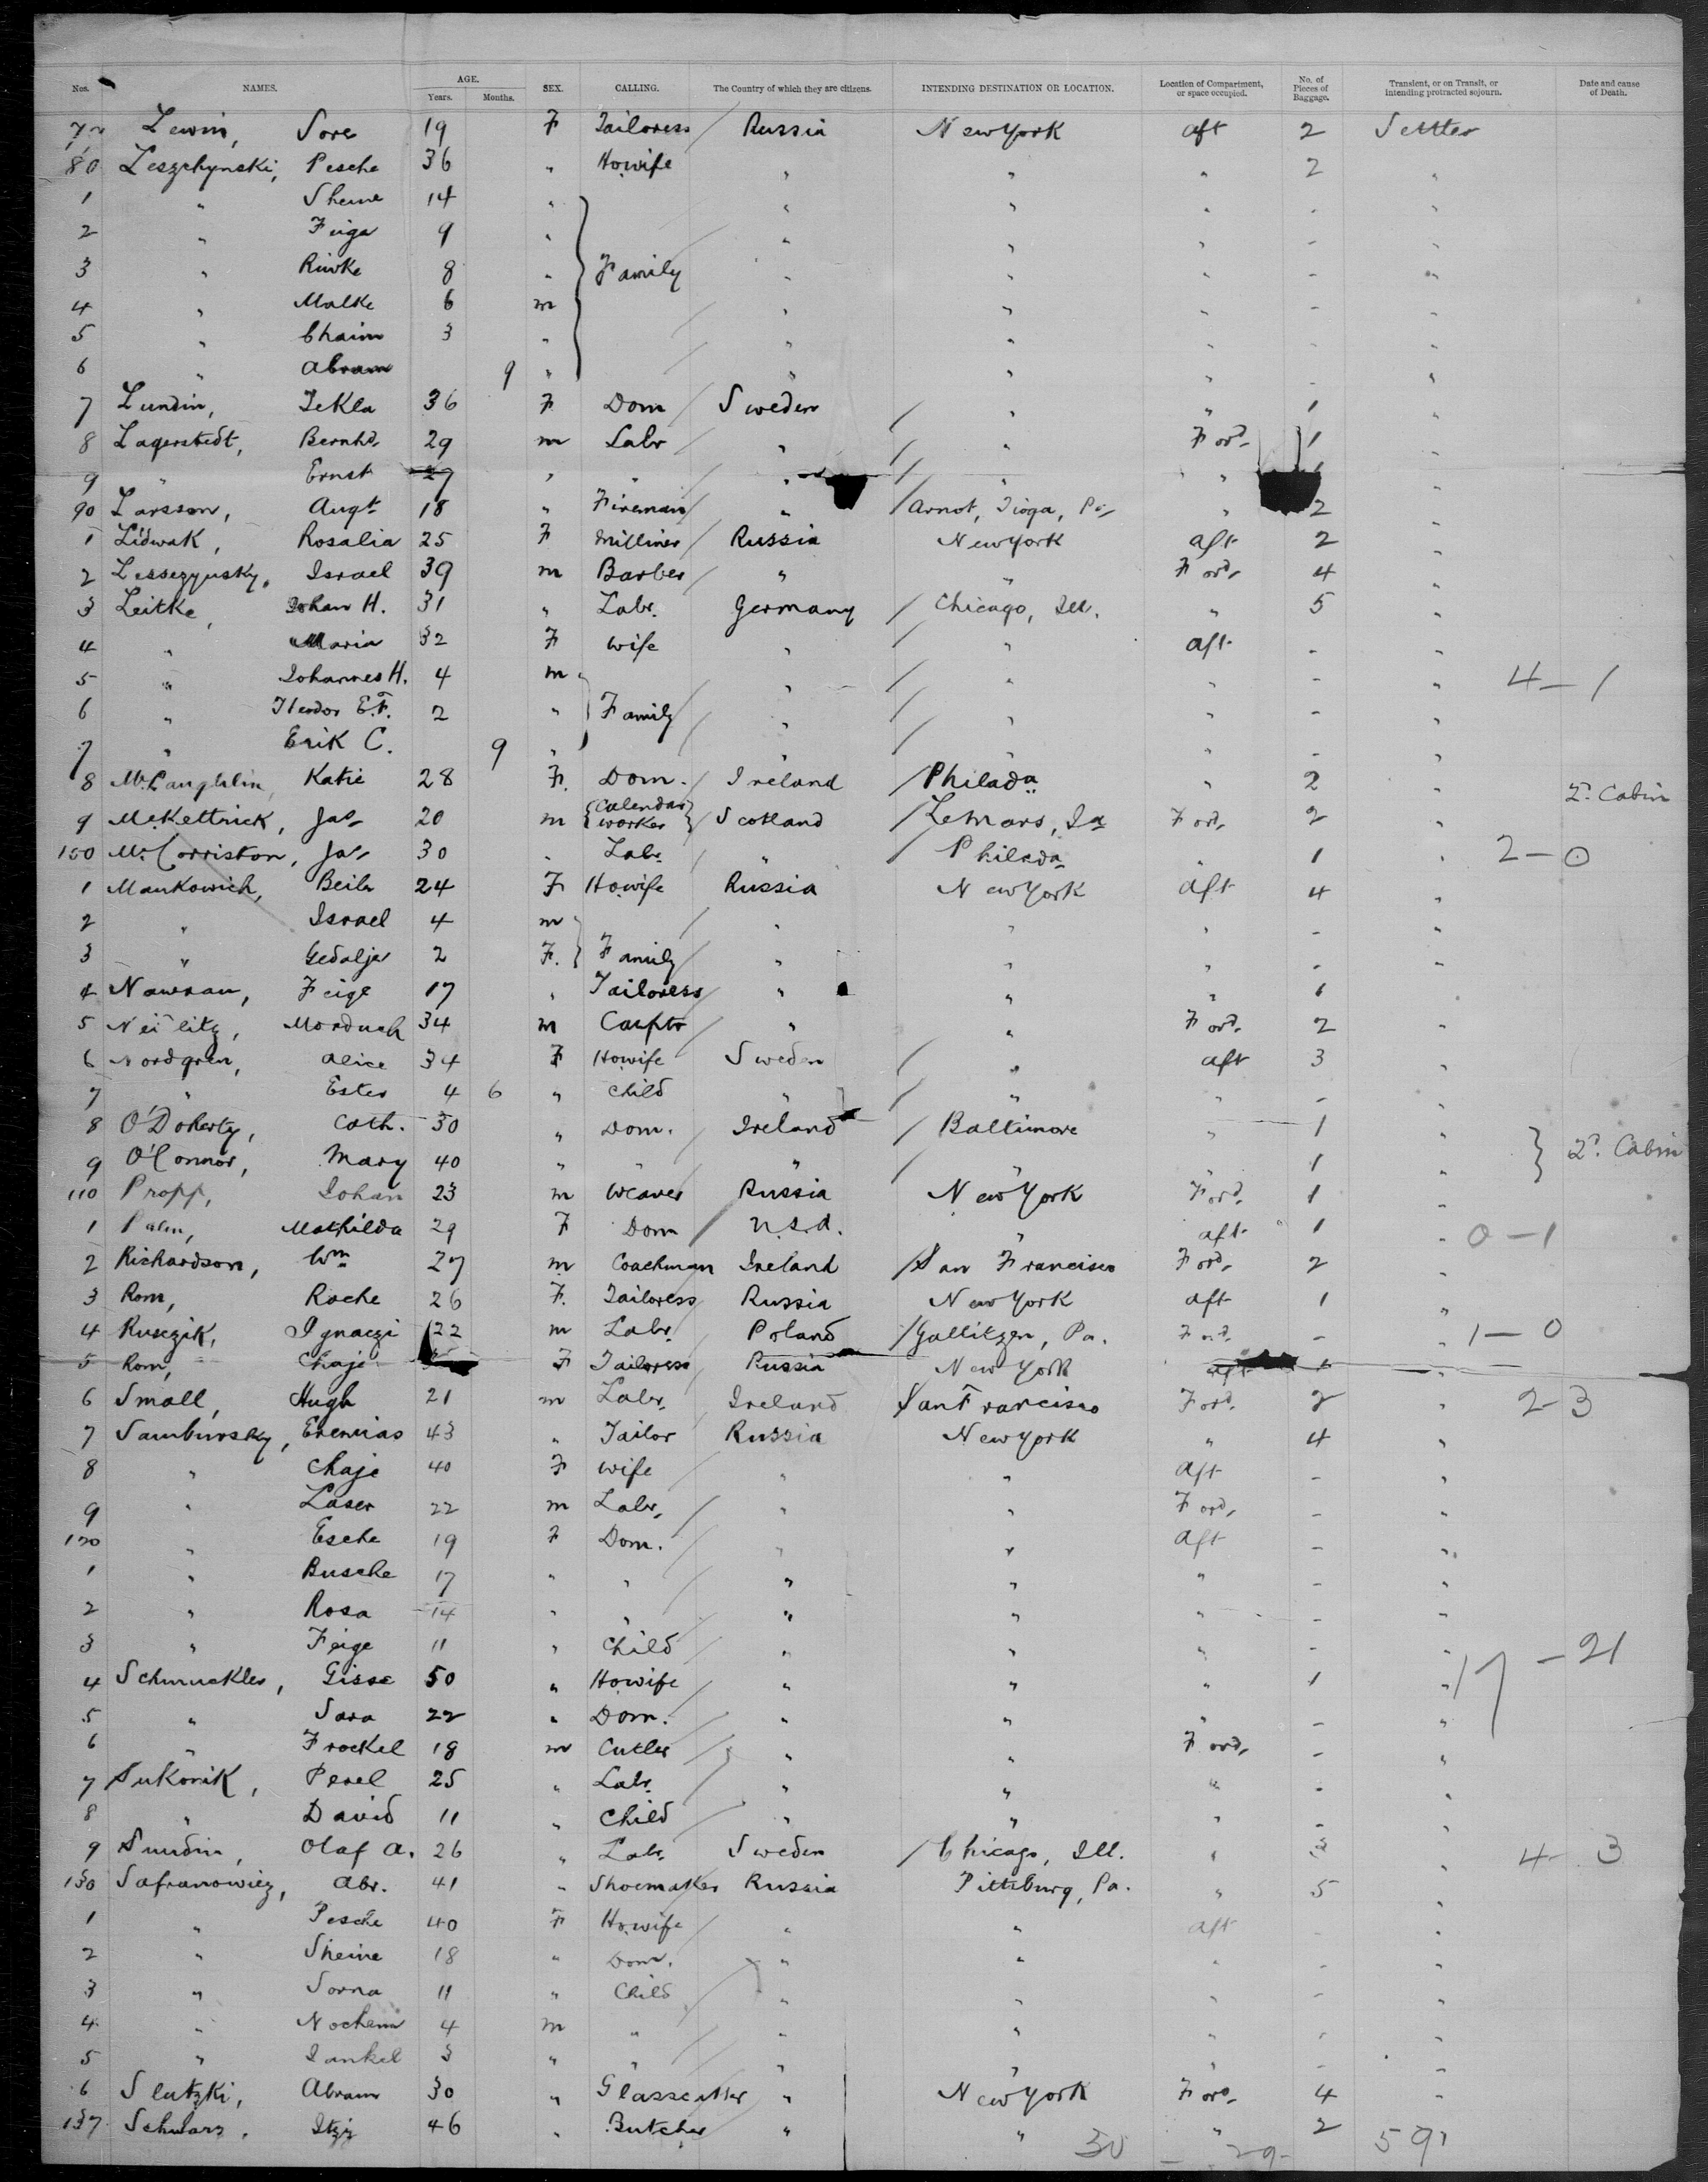 Nos. NAMES. AGE. Years. Months. SEX. CALLING. The Country of which they are citizens. INTENDING DESTINATION OR LOCATION. Location of Compartment, or space occupied. No. of Pieces of Baggage. Transient, or on Transit, or intending protracted sojourn. Date and cause of Death.
Lewin, Sore 19 F Tailoress Russia New York aft 2 Settler
80 Leszchynski, Pesche 36 " Howife " " " 2 "
1 " Sheine 14 " " " " - "
2 " Feiga 9 " " " " - "
3 " Riwke 8 " Family " " " - "
4 " Malke 6 m " " " - "
5 " Chaim 3 " " " " - "
6 " Abram 9 " " " " - "
7 Lundin, Tekla 36 F Dom Sweden " " 1 "
8 Lagerstedt, Bernhd. 29 m Labr " " Ford. 1 "
9 " Ernst 27 " " " " " "
90 Larsson, Augt 18 " Fireman " Arnot, Tioga, Pa " 2 "
1 Lidwak, Rosalia 25 F Milliner Russia New York aft 2 "
2 Lessezyusky, Israel 39 m Barber " " Ford. 4 "
3 Leitke, Johan H. 31 " Labr. Germany Chicago, Ill. " 5 "
4 " Maria 32 F Wife " " aft - "
5 " Johannes H. 4 m " " " - " 4-1
6 " Theodor E.F. 2 " Family " " " - "
7 " Erik C. 9 " " " " - "
8 McLaughlin, Katie 28 F. Dom. Ireland Philada " 2 " 2d. Cabin
9 McKettrick, Jas 20 m Calendar worker Scotland LeMars, Ia Ford. 2 "
100 McCorriston, Jas 30 " Labr. " Philada " 1 " 2-0
1 Mankowich, Beile 24 F Howife Russia New York aft 4 "
2 " Israel 4 m " " " - "
3 " Gedalje 2 F. Family " " " - "
4 Nawran, Feige 17 " Tailoress " " " 1 "
5 Neilitz, Morduch 34 m Carptr " " Ford. 2 "
6 Nordgren, Alice 34 F Howife Sweden " aft 3 "
7 " Ester 4 6 " Child " " " - "
8 O'Doherty, Cath. 30 " Dom. Ireland Baltimore " 1 "
9 O'Connor, Mary 40 " " " " " 1 " 2d. Cabin
110 Propp, Johan 23 m Weaver Russia New York Ford. 1 "
1 Palm, Mathilda 29 F Dom U.S.A. " aft 1 " 0-1
2 Richardson, Wm 27 m Coachman Ireland San Francisco Ford. 2 "
3 Rom, Roche 26 F. Tailoress Russia New York aft 1 "
4 Rusczik, Ignaczi 22 m Labr. Poland Gallitzen, Pa. Ford. - " 1-0
5 Rom, Chaje F Tailoress Russia New York aft 1 "
6 Small, Hugh 21 m Labr. Ireland San Francisco Ford. 2 " 2-3
7 Sambursky, Eremias 43 " Tailor Russia New York " 4 "
8 " Chaje 40 F Wife " " aft - "
9 " Laser 22 m Labr. " " Ford. - "
120 " Esche 19 F Dom. " " aft - "
1 " Busche 17 " " " " " - "
2 " Rosa 14 " " " " " - "
3 " Feige 11 " Child " " " - "
4 Schmuckler, Gisse 50 " Howife " " " 1 " 17-21
5 " Sara 22 " Dom. " " " - "
6 " Frockel 18 m Cutler " " Ford. - "
7 Sukonik, Perel 25 " Labr. " " " - "
8 " David 11 " Child " " " - "
9 Sundin, Olaf A. 26 " Labr. Sweden Chicago, Ill. " 3 " 4-3
130 Safranowiez, Abr. 41 " Shoemaker Russia Pittsburg, Pa. " 5 "
1 " Pesche 40 F Howife " " aft - "
2 " Sheine 18 " Dom. " " " - "
3 " Sorna 11 " Child " " " - "
4 " Nochem 4 m " " " " - "
5 " Jankel 3 " " " " " - "
6 Slutzki, Abram 30 " Glasscutter " New York Ford. 4 "
137 Schwarz, Itzj 46 " Butcher " " " 2
30 - 29- 591